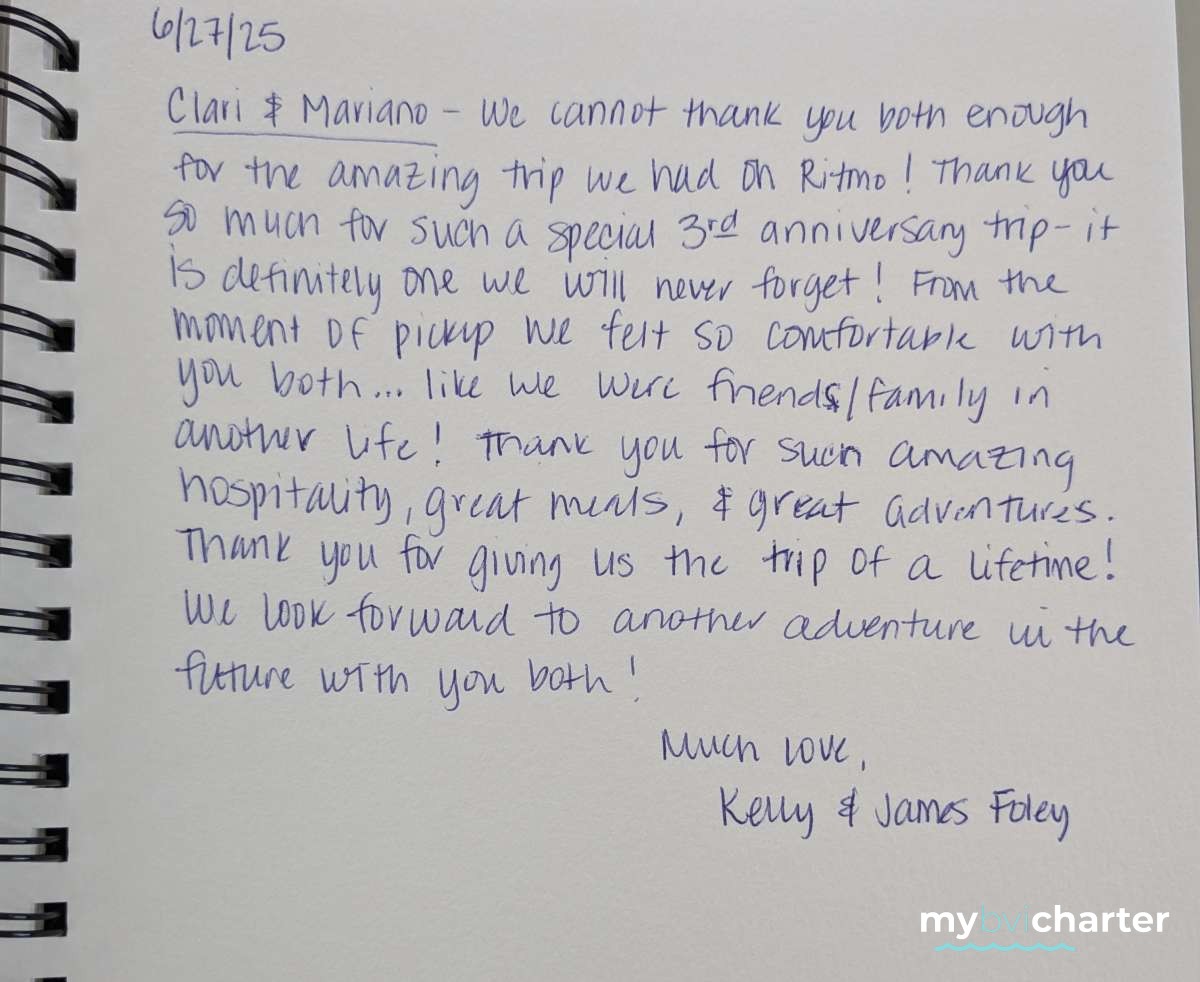 6/27/25
Clari & Mariano - We cannot thank you both enough
for the amazing trip we had on Ritmo! Thank you
so much for such a special 3rd anniversary trip - it
is definitely one we will never forget! From the
moment of pickup we felt so comfortable with
you both... like we were friends/family in
another life! Thank you for such amazing
hospitality, great meals, & great adventures.
Thank you for giving us the trip of a lifetime!
We look forward to another adventure in the
future with you both!
Much love,
Kelly & James Foley
mybvicharter